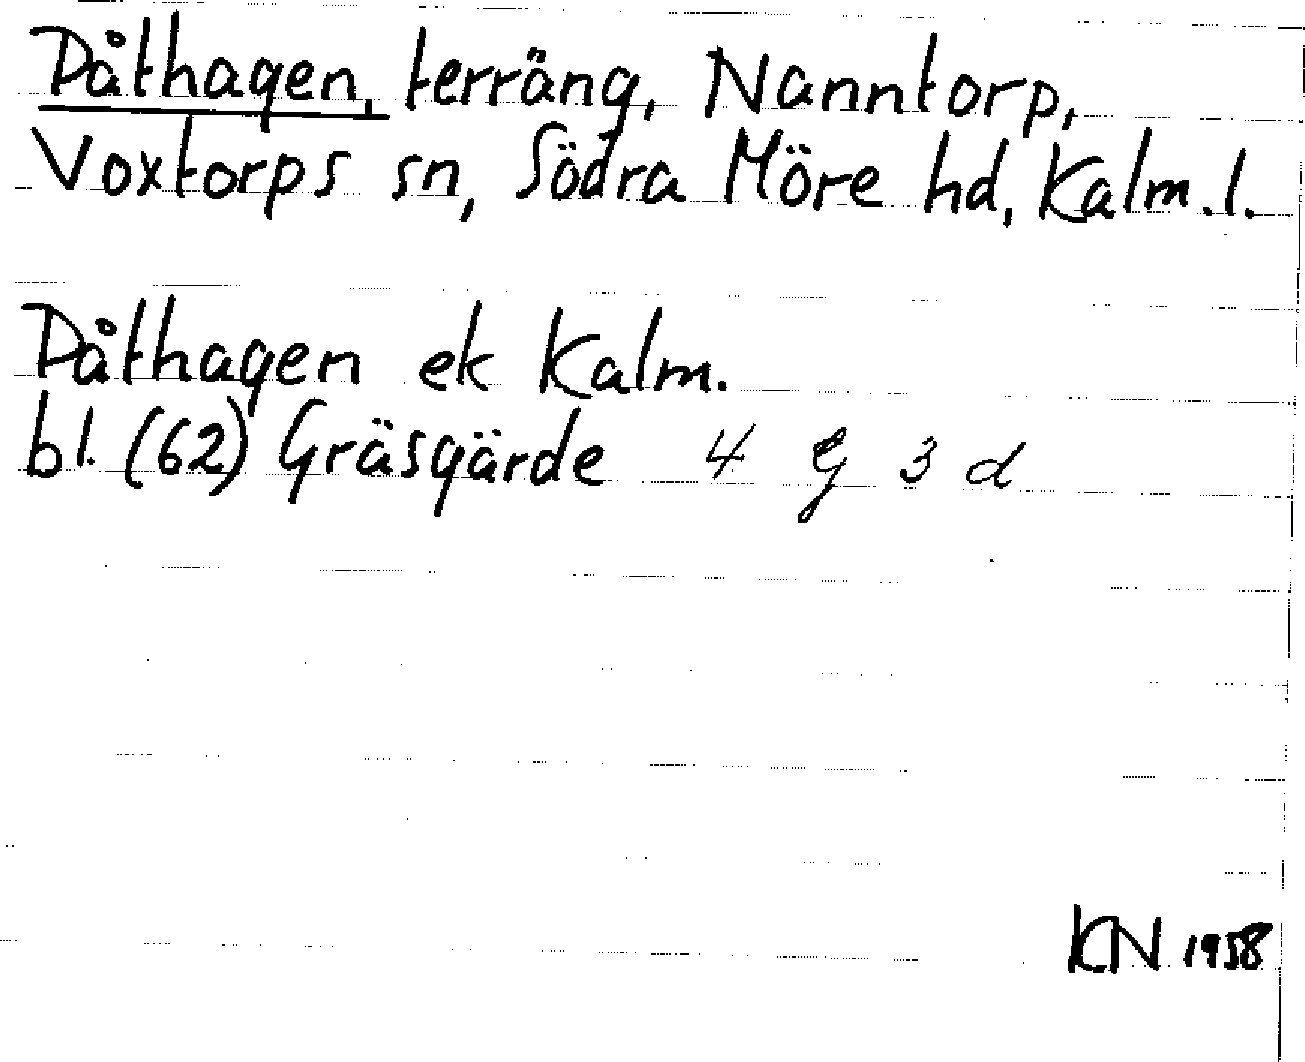 Påthagen, terräng, Nanntorp,
Voxtorps sn, Södra Möre hd, Kalm. l.
Påthagen ek Kalm.
bl. (62) Gräsgärde 4 G 3 d
KN 1958